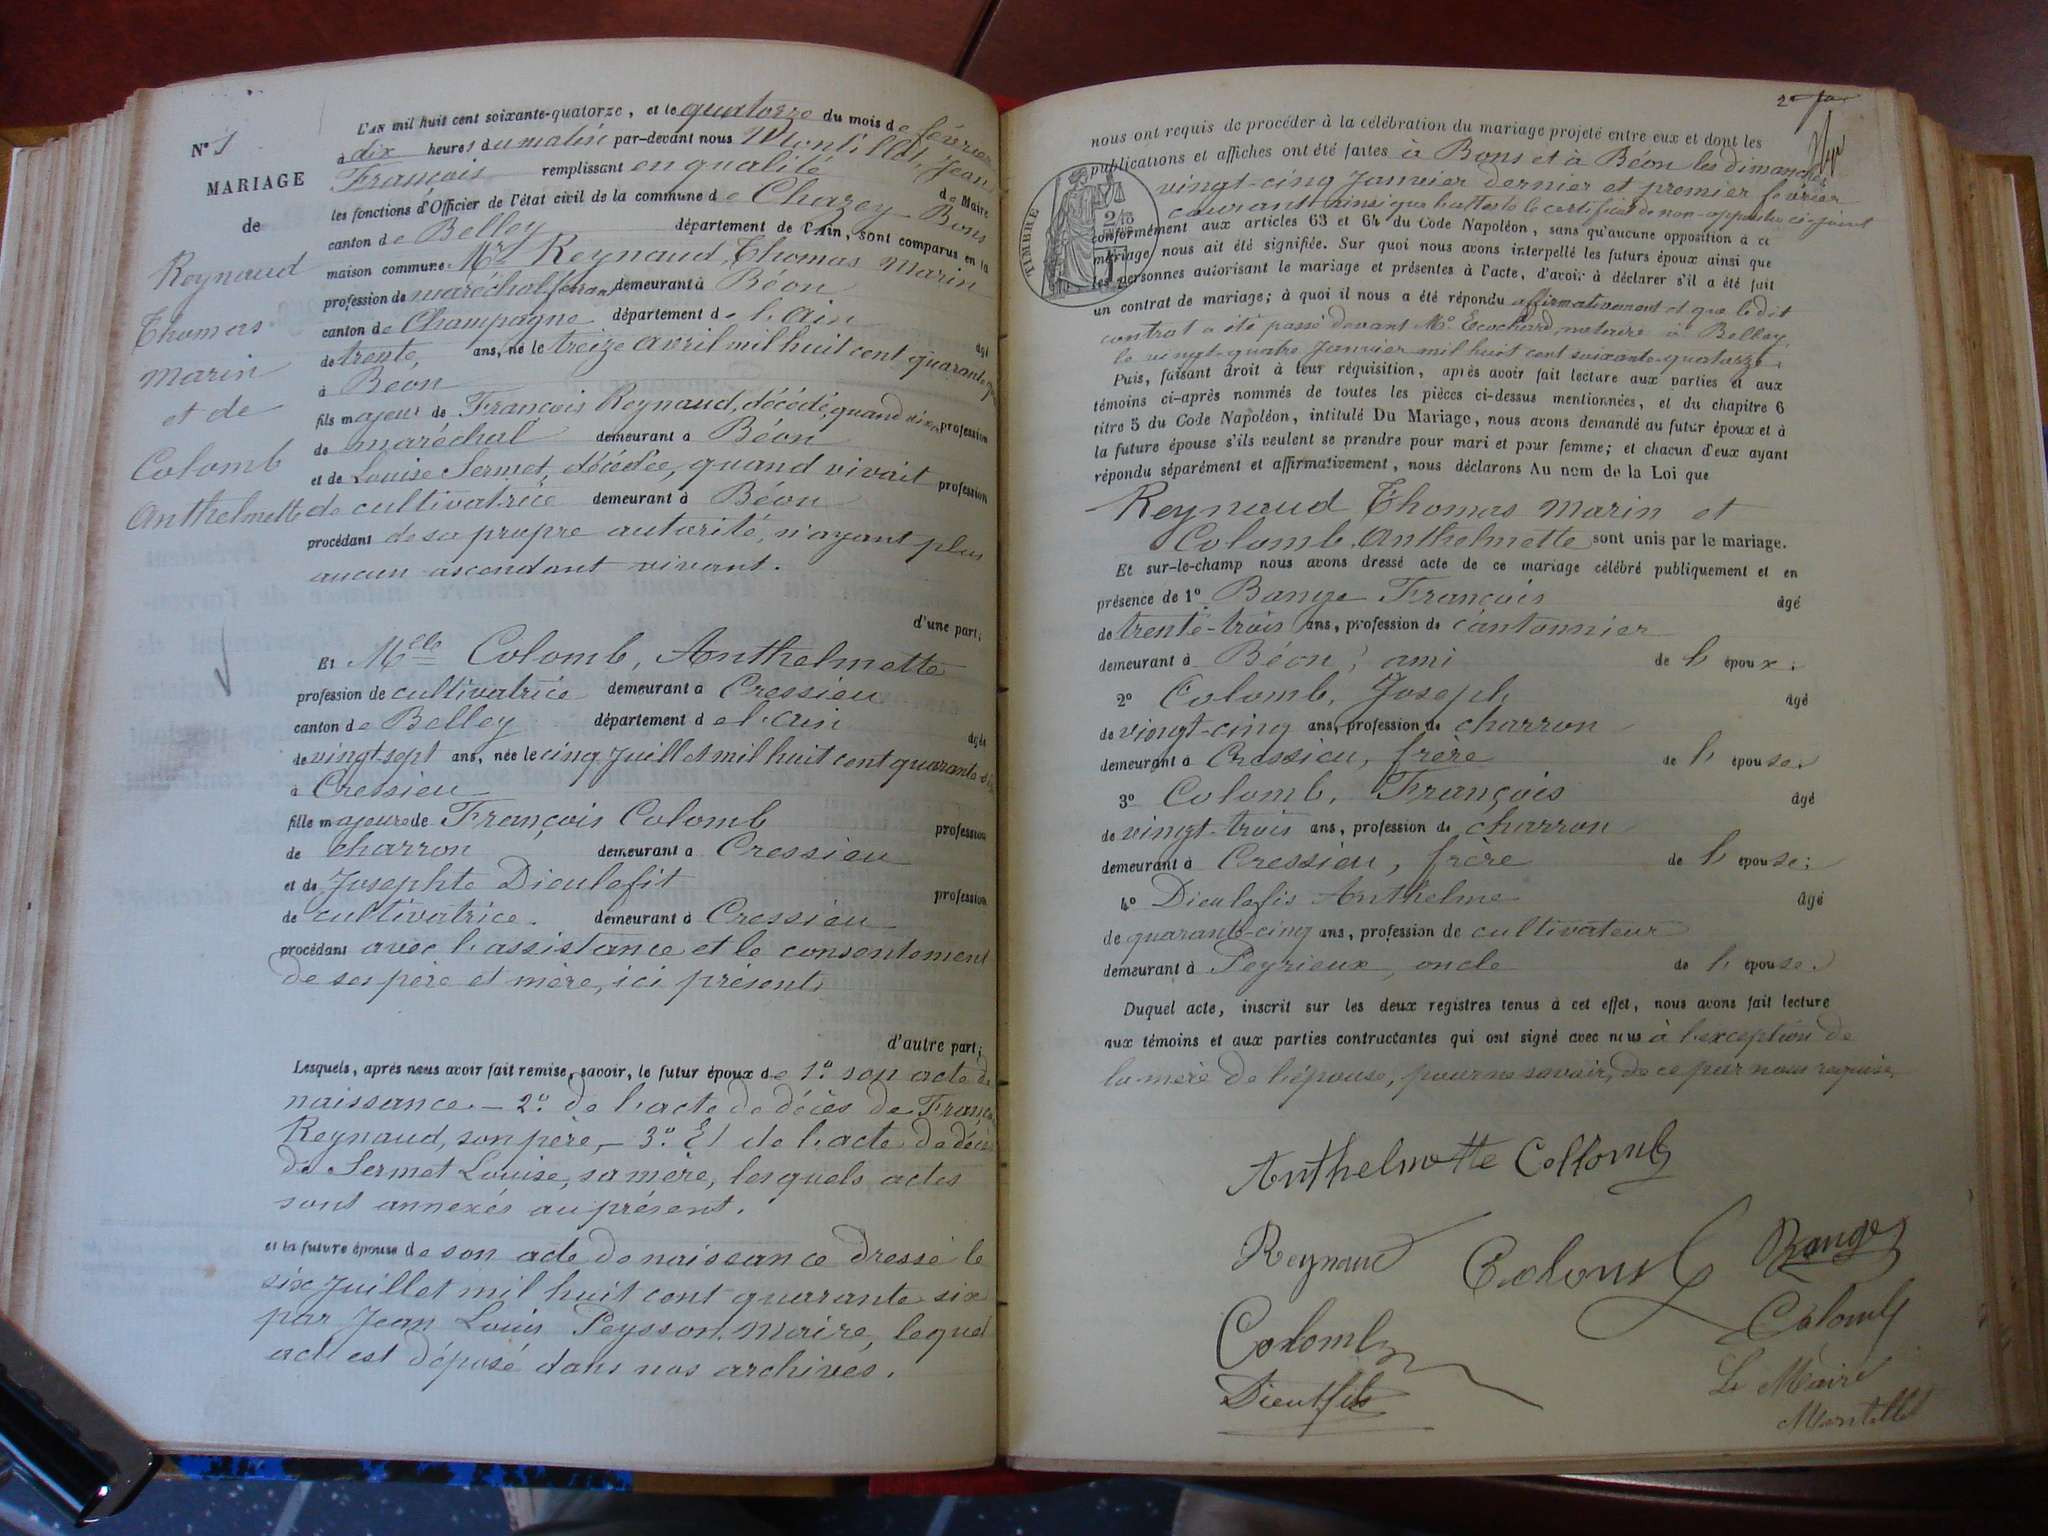 N° 1
MARIAGE
de
Reynaud
Thomas
Marin
et de
Colomb
Anthelmette
L'AN mil huit cent soixante-quatorze, et le quatorze du mois de février
à dix heures du matin par-devant nous Montillet, Jean
François remplissant en qualité de Maire
les fonctions d'Officier de l'état civil de la commune de Chazey-Bons
canton de Belley département de l'Ain, sont comparus en la
maison commune Mr Reynaud, Thomas Marin
profession de maréchal ferrant demeurant à Béon
canton de Champagne département de l'Ain âgé
de trente ans, né le treize avril mil huit cent quarante
à Béon
fils majeur de François Reynaud, décédé, quand vivait profession
de maréchal demeurant à Béon
et de Louise Sermet, décédée, quand vivait profession
de cultivatrice demeurant à Béon
procédant de sa propre autorité, n'ayant plus
aucun ascendant vivant.
d'une part;
Et Melle Colomb, Anthelmette
profession de cultivatrice demeurant à Cressieu
canton de Belley département de l'Ain âgée
de vingt-sept ans, née le cinq Juillet mil huit cent quarante-six
à Cressieu
fille majeure de François Colomb profession
de charron demeurant à Cressieu
et de Josephte Dieulefit profession
de cultivatrice. demeurant à Cressieu
procédant avec l'assistance et le consentement
de ses père et mère, ici présents
d'autre part;
Lesquels, après nous avoir fait remise, savoir, le futur époux de 1° son acte de
naissance. — 2° de l'acte de décès de François
Reynaud, son père, — 3° Et de l'acte de décès
de Sermet Louise, sa mère, lesquels actes
sont annexés au présent.
et la future épouse de son acte de naissance dressé le
six Juillet mil huit cent quarante six
par Jean Louis Peysson, Maire, lequel
acte est déposé dans nos archives.
2e
nous ont requis de procéder à la célébration du mariage projeté entre eux et dont les
publications et affiches ont été faites à Bons et à Béon les dimanches
vingt-cinq Janvier dernier et premier février
courant ainsi que l'atteste le certificat de non-opposition ci-joint
TIMBRE
conformément aux articles 63 et 64 du Code Napoléon, sans qu'aucune opposition à ce
mariage nous ait été signifiée. Sur quoi nous avons interpellé les futurs époux ainsi que
les personnes autorisant le mariage et présentes à l'acte, d'avoir à déclarer s'il a été fait
un contrat de mariage; à quoi il nous a été répondu affirmativement et que le dit
contrat a été passé devant Me Ecochard, notaire à Belley
le vingt-quatre Janvier mil huit cent soixante-quatorze.
Puis, faisant droit à leur réquisition, après avoir fait lecture aux parties et aux
témoins ci-après nommés de toutes les pièces ci-dessus mentionnées, et du chapitre 6
titre 5 du Code Napoléon, intitulé Du Mariage, nous avons demandé au futur époux et à
la future épouse s'ils veulent se prendre pour mari et pour femme; et chacun d'eux ayant
répondu séparément et affirmativement, nous déclarons Au nom de la Loi que
Reynaud Thomas Marin et
Colomb Anthelmette sont unis par le mariage.
Et sur-le-champ nous avons dressé acte de ce mariage célébré publiquement et en
présence de 1° Bange François âgé
de trente-trois ans, profession de cantonnier
demeurant à Béon, ami de l'époux;
2° Colomb, Joseph âgé
de vingt-cinq ans, profession de charron
demeurant à Cressieu, frère de l'épouse.
3° Colomb, François âgé
de vingt-trois ans, profession de charron
demeurant à Cressieu, frère de l'épouse;
4° Dieulefis Anthelme âgé
de quarante-cinq ans, profession de cultivateur
demeurant à Peyrieux, oncle de l'épouse.
Duquel acte, inscrit sur les deux registres tenus à cet effet, nous avons fait lecture
aux témoins et aux parties contractantes qui ont signé avec nous à l'exception de
la mère de l'épouse, pour ne savoir, de ce par nous requise.
Anthelmette Collomb
Reynaud Colomb Bange
Colomb Colomb
Dieulefils Le Maire
Montillet